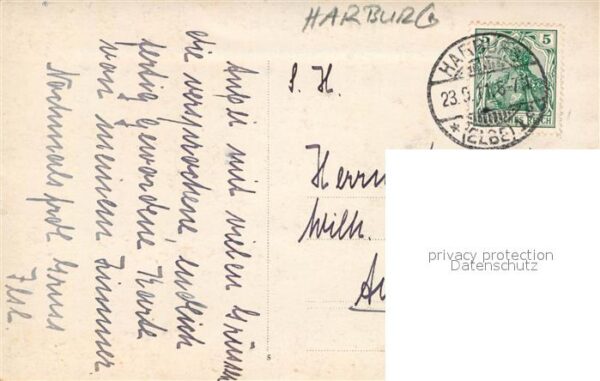 HARBURG
5
HARBURG
23.9.11.6-7N
* (ELBE)
S. H.
Herrn
Wilh.
privacy protection
Datenschutz
mit vielen Grüssen
die versprochene, endlich
fertig gewordene Karte
von meinem Zimmer
Nochmals Gruss